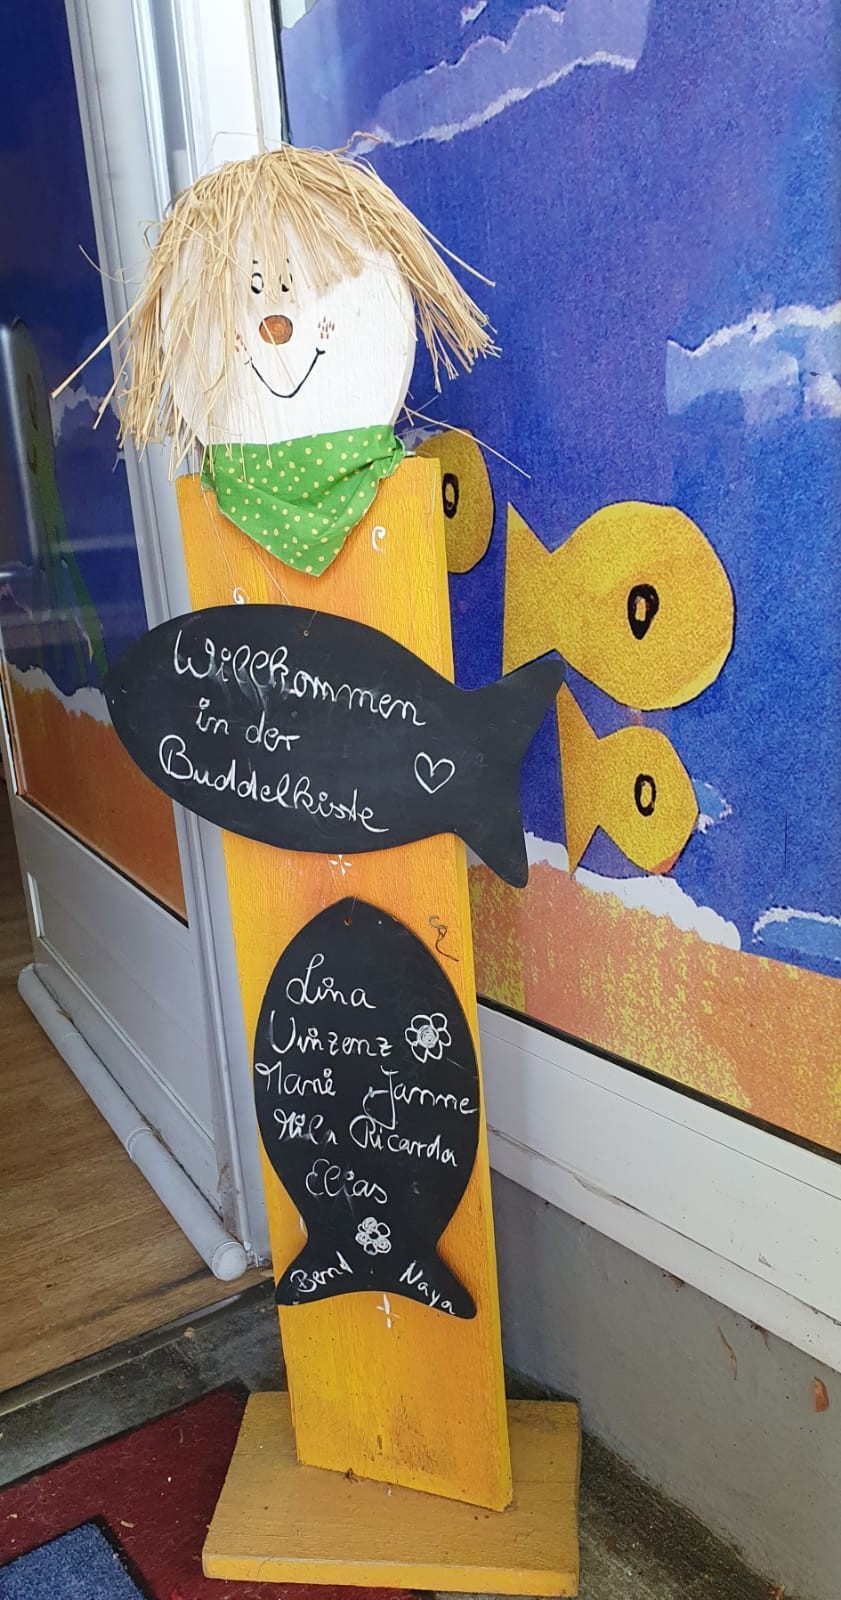 Willkommen
in der
Buddelkiste
Lina
Vinzenz
Marie Janne
Ricarda
Elias
Bernd Naya